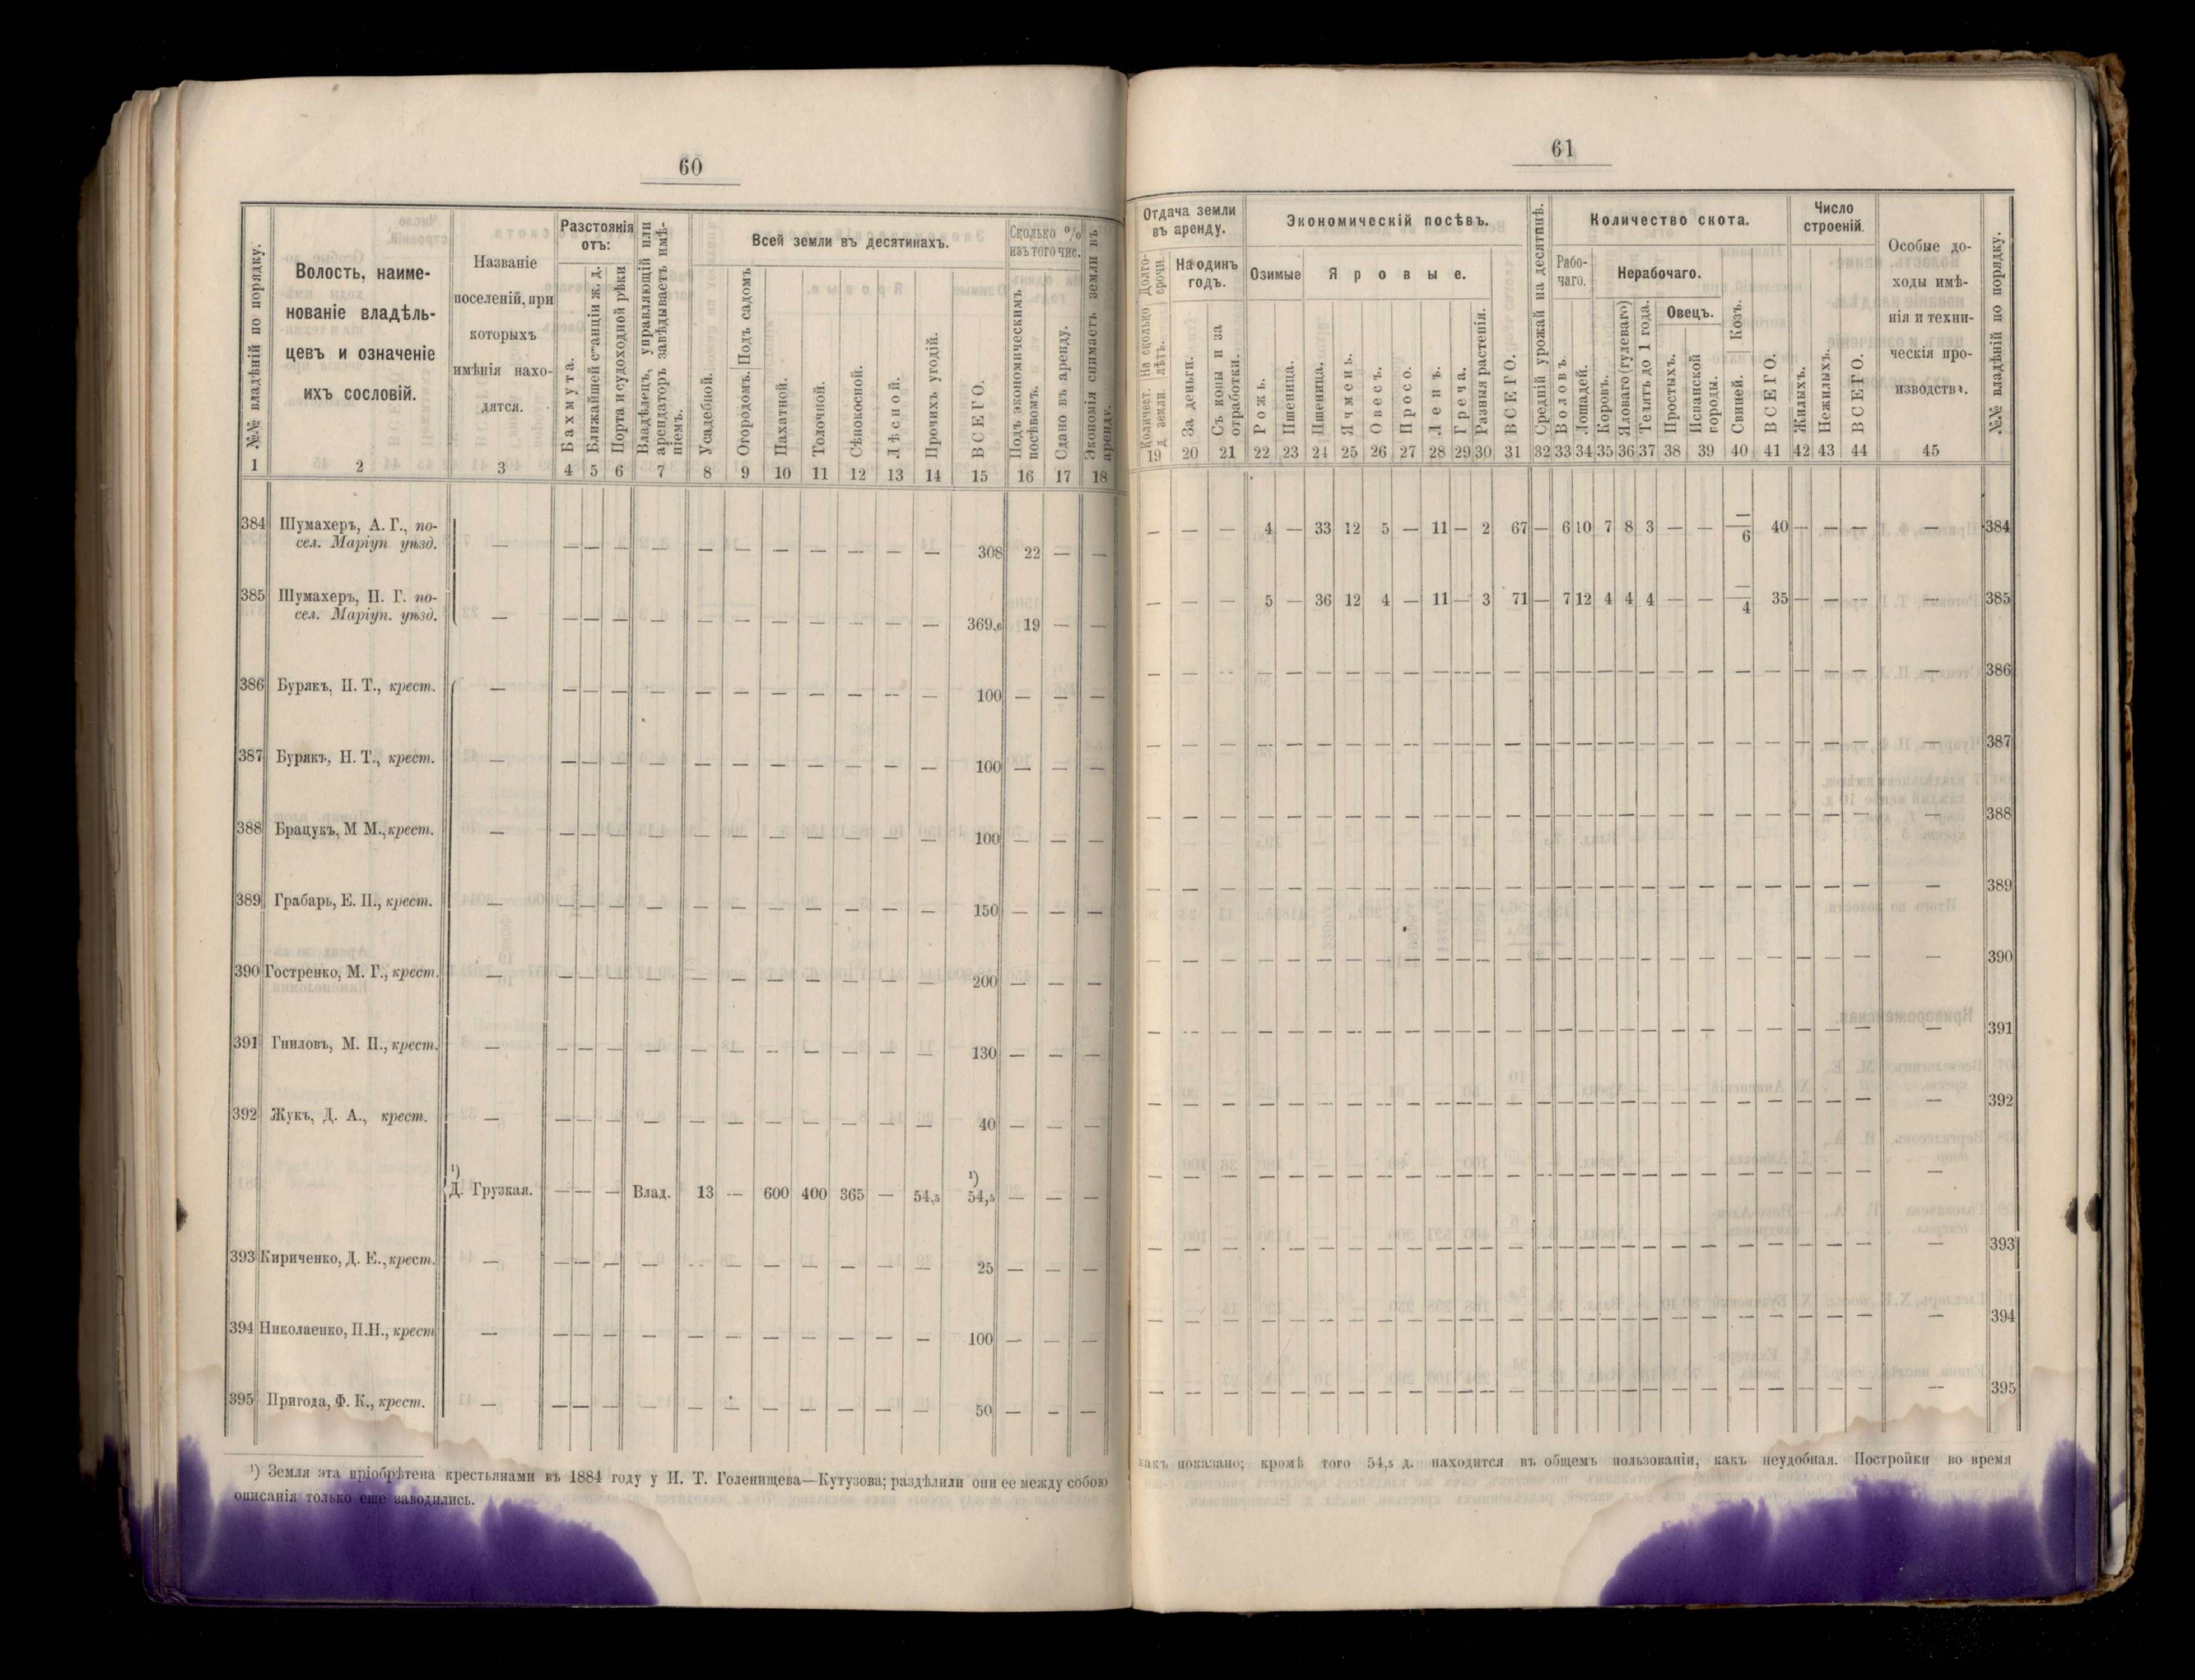 60
№№ владѣній по порядку.
Волость, наиме-
нованіе владѣль-
цевъ и означеніе
ихъ сословій.
Названіе
поселеній, при
которыхъ
имѣнія нахо-
дятся.
Разстоянія
отъ:
Бахмута.
Ближайшей станціи ж. д.
Порта и судоходной рѣки
Владѣлецъ, управляющій или
арендаторъ завѣдываетъ имѣ-
ніемъ.
Всей земли въ десятинахъ.
Усадебной.
Огородомъ. Подъ садомъ
Пахатной.
Толочной.
Сѣнокосной.
Лѣсной.
Прочихъ угодій.
ВСЕГО.
Сколько %
изъ того чис.
Подъ экономическимъ
посѣвомъ.
Сдано въ аренду.
Экономія снимаетъ земли въ
аренду.
1 2 3 4 5 6 7 8 9 10 11 12 13 14 15 16 17 18
384 Шумахеръ, А. Г., по-
сел. Маріуп уѣзд. — — — — — — — — — — — — 308 22 — —
385 Шумахеръ, П. Г. по-
сел. Маріуп. уѣзд. — — — — — — — — — — — — 369,6 19 — —
386 Бурякъ, П. Т., крест. — — — — — — — — — — — — 100 — — —
387 Бурякъ, Н. Т., крест. — — — — — — — — — — — — 100 — — —
388 Брацукъ, М М., крест. — — — — — — — — — — — — 100 — — —
389 Грабарь, Е. П., крест. — — — — — — — — — — — — 150 — — —
390 Гостренко, М. Г., крест. — — — — — — — — — — — — 200 — — —
391 Гниловъ, М. П., крест. — — — — — — — — — — — — 130 — — —
392 Жукъ, Д. А., крест. — — — — — — — — — — — — 40 — — —
¹) Д. Грузкая. — — — Влад. 13 — 600 400 365 — 54,5 ¹) 54,5 — — —
393 Кириченко, Д. Е., крест. — — — — — — — — — — — — 25 — — —
394 Николаенко, П.Н., крест — — — — — — — — — — — — 100 — — —
395 Пригода, Ф. К., крест. — — — — — — — — — — — — 50 — — —
¹) Земля эта пріобрѣтена крестьянами въ 1884 году у И. Т. Голенищева—Кутузова; раздѣлили они ее между собою
описанія только еще заводились.
61
Отдача земли
въ аренду.
Долго-
срочн.
Количест. На сколько
д. земли. лѣтъ.
На одинъ
годъ.
За деньги.
Съ копы и за
отработки.
Экономическій посѣвъ.
Озимые
Яровые.
Рожь.
Пшеница.
Пшеница.
Ячмень.
Овесъ.
Просо.
Ленъ.
Греча.
Разныя растенія.
ВСЕГО.
Средній урожай на десятинѣ.
Количество скота.
Рабо-
чаго.
Нерабочаго.
Воловъ.
Лошадей.
Коровъ.
Яловаго (гулеваго)
Телятъ до 1 года.
Овецъ.
Простыхъ.
Испанской
породы.
Козъ.
Свиней.
ВСЕГО.
Число
строеній.
Жилыхъ.
Нежилыхъ.
ВСЕГО.
Особые до-
ходы имѣ-
нія и техни-
ческія про-
изводства.
№№ владѣній по порядку.
19 20 21 22 23 24 25 26 27 28 29 30 31 32 33 34 35 36 37 38 39 40 41 42 43 44 45
— — — 4 — 33 12 5 — 11 — 2 67 — 6 10 7 8 3 — — —/6 40 — — — — 384
— — — 5 — 36 12 4 — 11 — 3 71 — 7 12 4 4 4 — — —/4 35 — — — — 385
— — — — — — — — — — — — — — — — — — — — — — — — — — — 386
— — — — — — — — — — — — — — — — — — — — — — — — — — — 387
— — — — — — — — — — — — — — — — — — — — — — — — — — — 388
— — — — — — — — — — — — — — — — — — — — — — — — — — — 389
— — — — — — — — — — — — — — — — — — — — — — — — — — — 390
— — — — — — — — — — — — — — — — — — — — — — — — — — — 391
— — — — — — — — — — — — — — — — — — — — — — — — — — — 392
— — — — — — — — — — — — — — — — — — — — — — — — — — —
— — — — — — — — — — — — — — — — — — — — — — — — — — — 393
— — — — — — — — — — — — — — — — — — — — — — — — — — — 394
— — — — — — — — — — — — — — — — — — — — — — — — — — — 395
какъ показано; кромѣ того 54,5 д. находится въ общемъ пользованіи, какъ неудобная. Постройки во время